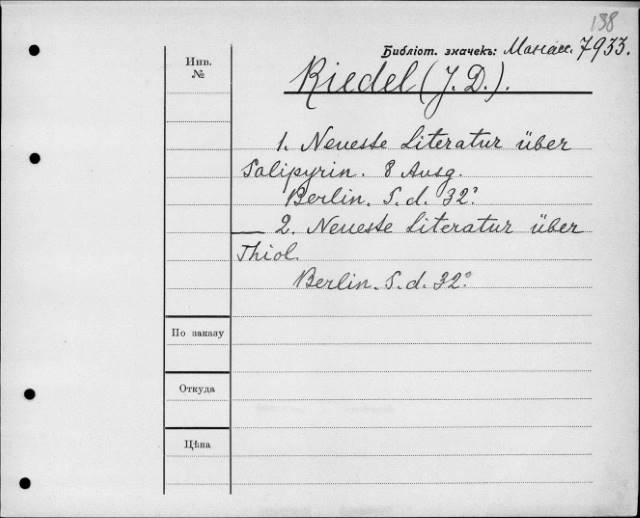 138
Библіот. значекъ: Манасс. 7933.
Инв.
№
Riedel (J. D.).
1. Neueste Literatur über
Salipyrin. 8 Ausg.
Berlin. S. d. 32º
— 2. Neueste Literatur über
Thiol.
Berlin. S. d. 32º
По заказу
Откуда
Цѣна